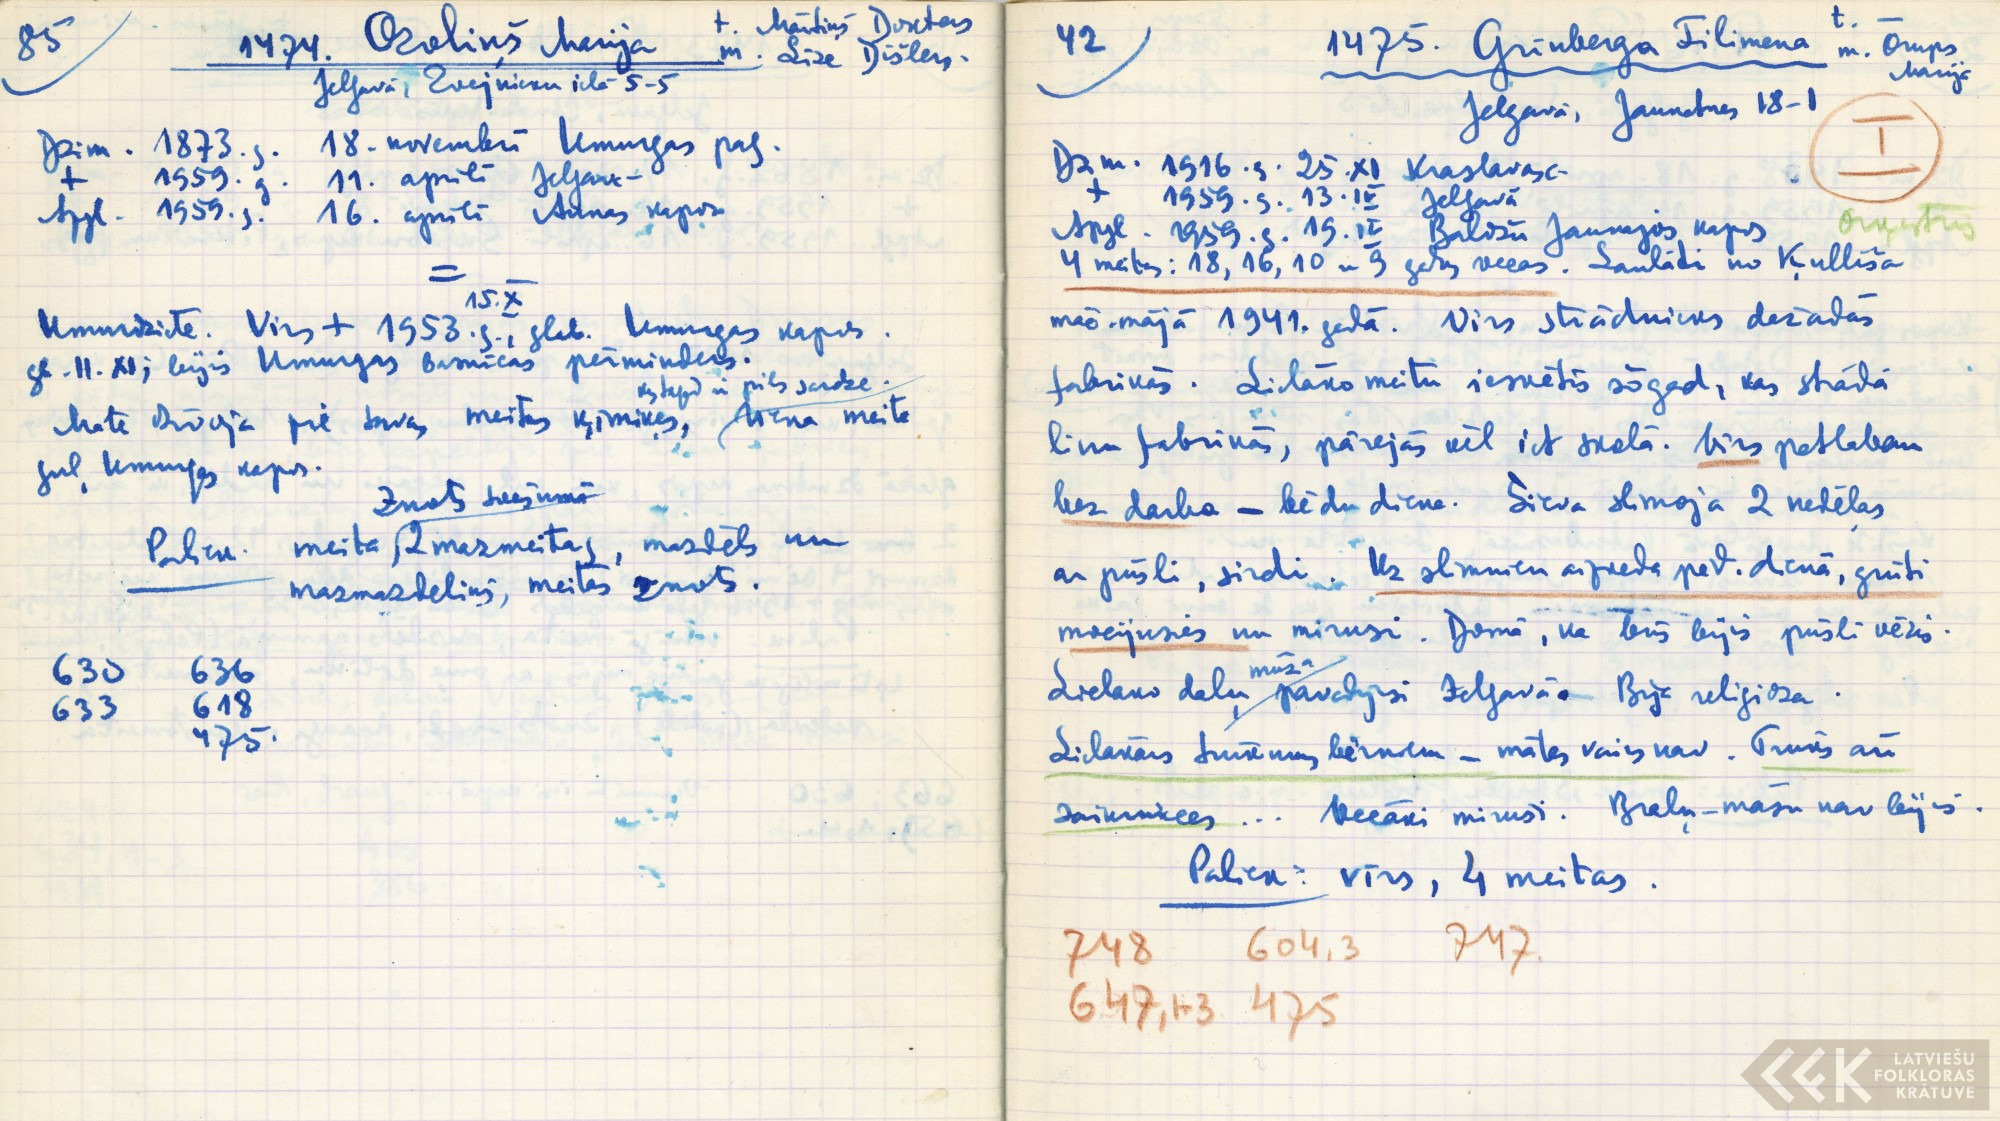 85
1474. Ozoliņš Marija
t. Mārtiņš Dokters
m. Līze Dišlers.
Jelgavā, Zvejnieku ielā 5-5
Dzim. 1873.g. 18. novembrī Umurgas pag.
+ 1959.g. 11. aprīlī Jelgavā
Apgl. 1959.g. 16. aprīlī Annas kapos
=
15.X
Umurdziete. Vīrs + 1953.g., glab. Umurgas kapos.
gl. II. XI; bijis Umurgas baznīcas pērminders.
Māte dzīvoja pie savas meitas ķīmiķes, viena meita
guļ Umurgas kapos.
Znots svešumā
Paliek. meita, 2 mazmeitas, mazdēls un
mazmazdēliņš, meitas znots.
630 636
633 618
475.
42
1475. Grīnberga Filimena
t.
m. Ōrups
Marija
Jelgavā, Jaunatnes 18-1
I
Orķestris
Dzim. 1916.g. 25.XI Kraslavas
+ 1959.g. 13.IV Jelgavā
Apgl. 1959.g. 19.IV Baložu Jaunajos kapos
4 meitas: 18, 16, 10 u 9 gadus vecas. Laulāti no Ķullīša
māc.mājā 1941. gadā. Vīrs strādnieks dažādās
fabrikās. Lielāko meitu iesvētīs šōgad, kas strādā
linu fabrikās, pārejās vēl iet skolā. Vīrs patlaban
bez darba – bēdu diena. Sieva slimoja 2 nedēļas
ar pūsli, sirdi. Uz slimnīcu aizveda pēd. dienā, grūti
mocījusies un mirusi. Domā, ka būs bijis pūslī vēzis.
Lielāko daļu mūža pavadījusi Jelgavā. Bija religioza.
Lielākais trūkums bērniem – mātes vairs nav. Trūks arī
saimnieces ... Vecāki miruši. Braļu-māsu nav bijis.
Paliek: vīrs, 4 meitas.
748 604,3 747.
647,1-3 475
LATVIEŠU
FOLKLORAS
KRĀTUVE